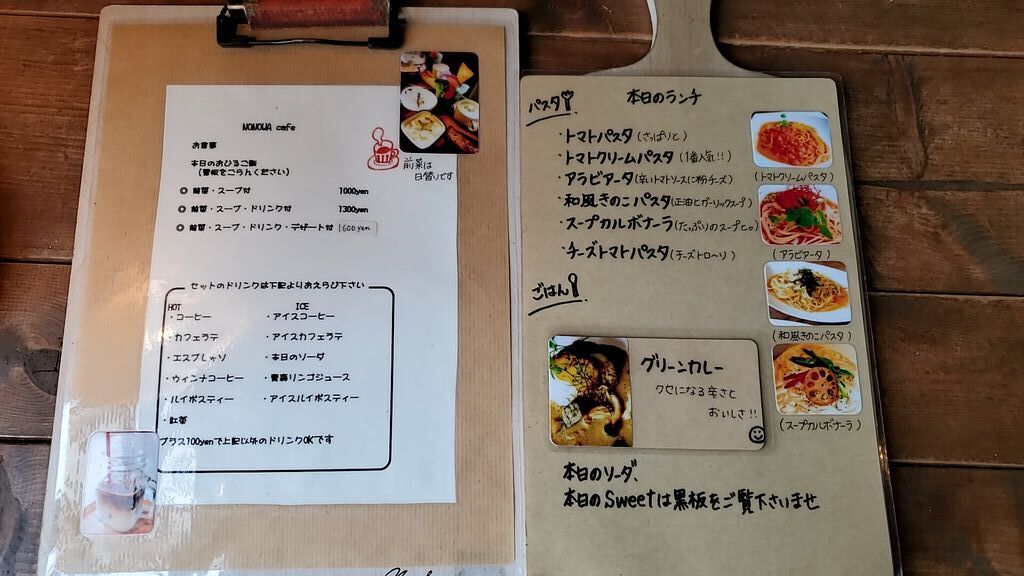 NONOWA cafe
お食事
本日のおひるご飯
(黒板をごらんください)
◎ 前菜・スープ付 1000yen
◎ 前菜・スープ・ドリンク付 1300yen
◎ 前菜・スープ・ドリンク・デザート付 1600yen
前菜は
日替りです
セットのドリンクは下記よりおえらび下さい
HOT ICE
・コーヒー ・アイスコーヒー
・カフェラテ ・アイスカフェラテ
・エスプレッソ ・本日のソーダ
・ウィンナコーヒー ・青森リンゴジュース
・ルイボスティー ・アイスルイボスティー
・紅茶
プラス100yenで上記以外のドリンクOKです
本日のランチ
パスタ
・トマトパスタ(さっぱりと)
・トマトクリームパスタ(1番人気!!)
・アラビアータ(辛いトマトソースに粉チーズ)
・和風きのこパスタ(正油とガーリックスープ)
・スープカルボナーラ(たっぷりのスープと。)
・チーズトマトパスタ(チーズトロ〜リ)
(トマトクリームパスタ)
(アラビアータ)
(和風きのこパスタ)
(スープカルボナーラ)
ごはん
グリーンカレー
クセになる辛さと
おいしさ!!
本日のソーダ、
本日のSweetは黒板をご覧下さいませ